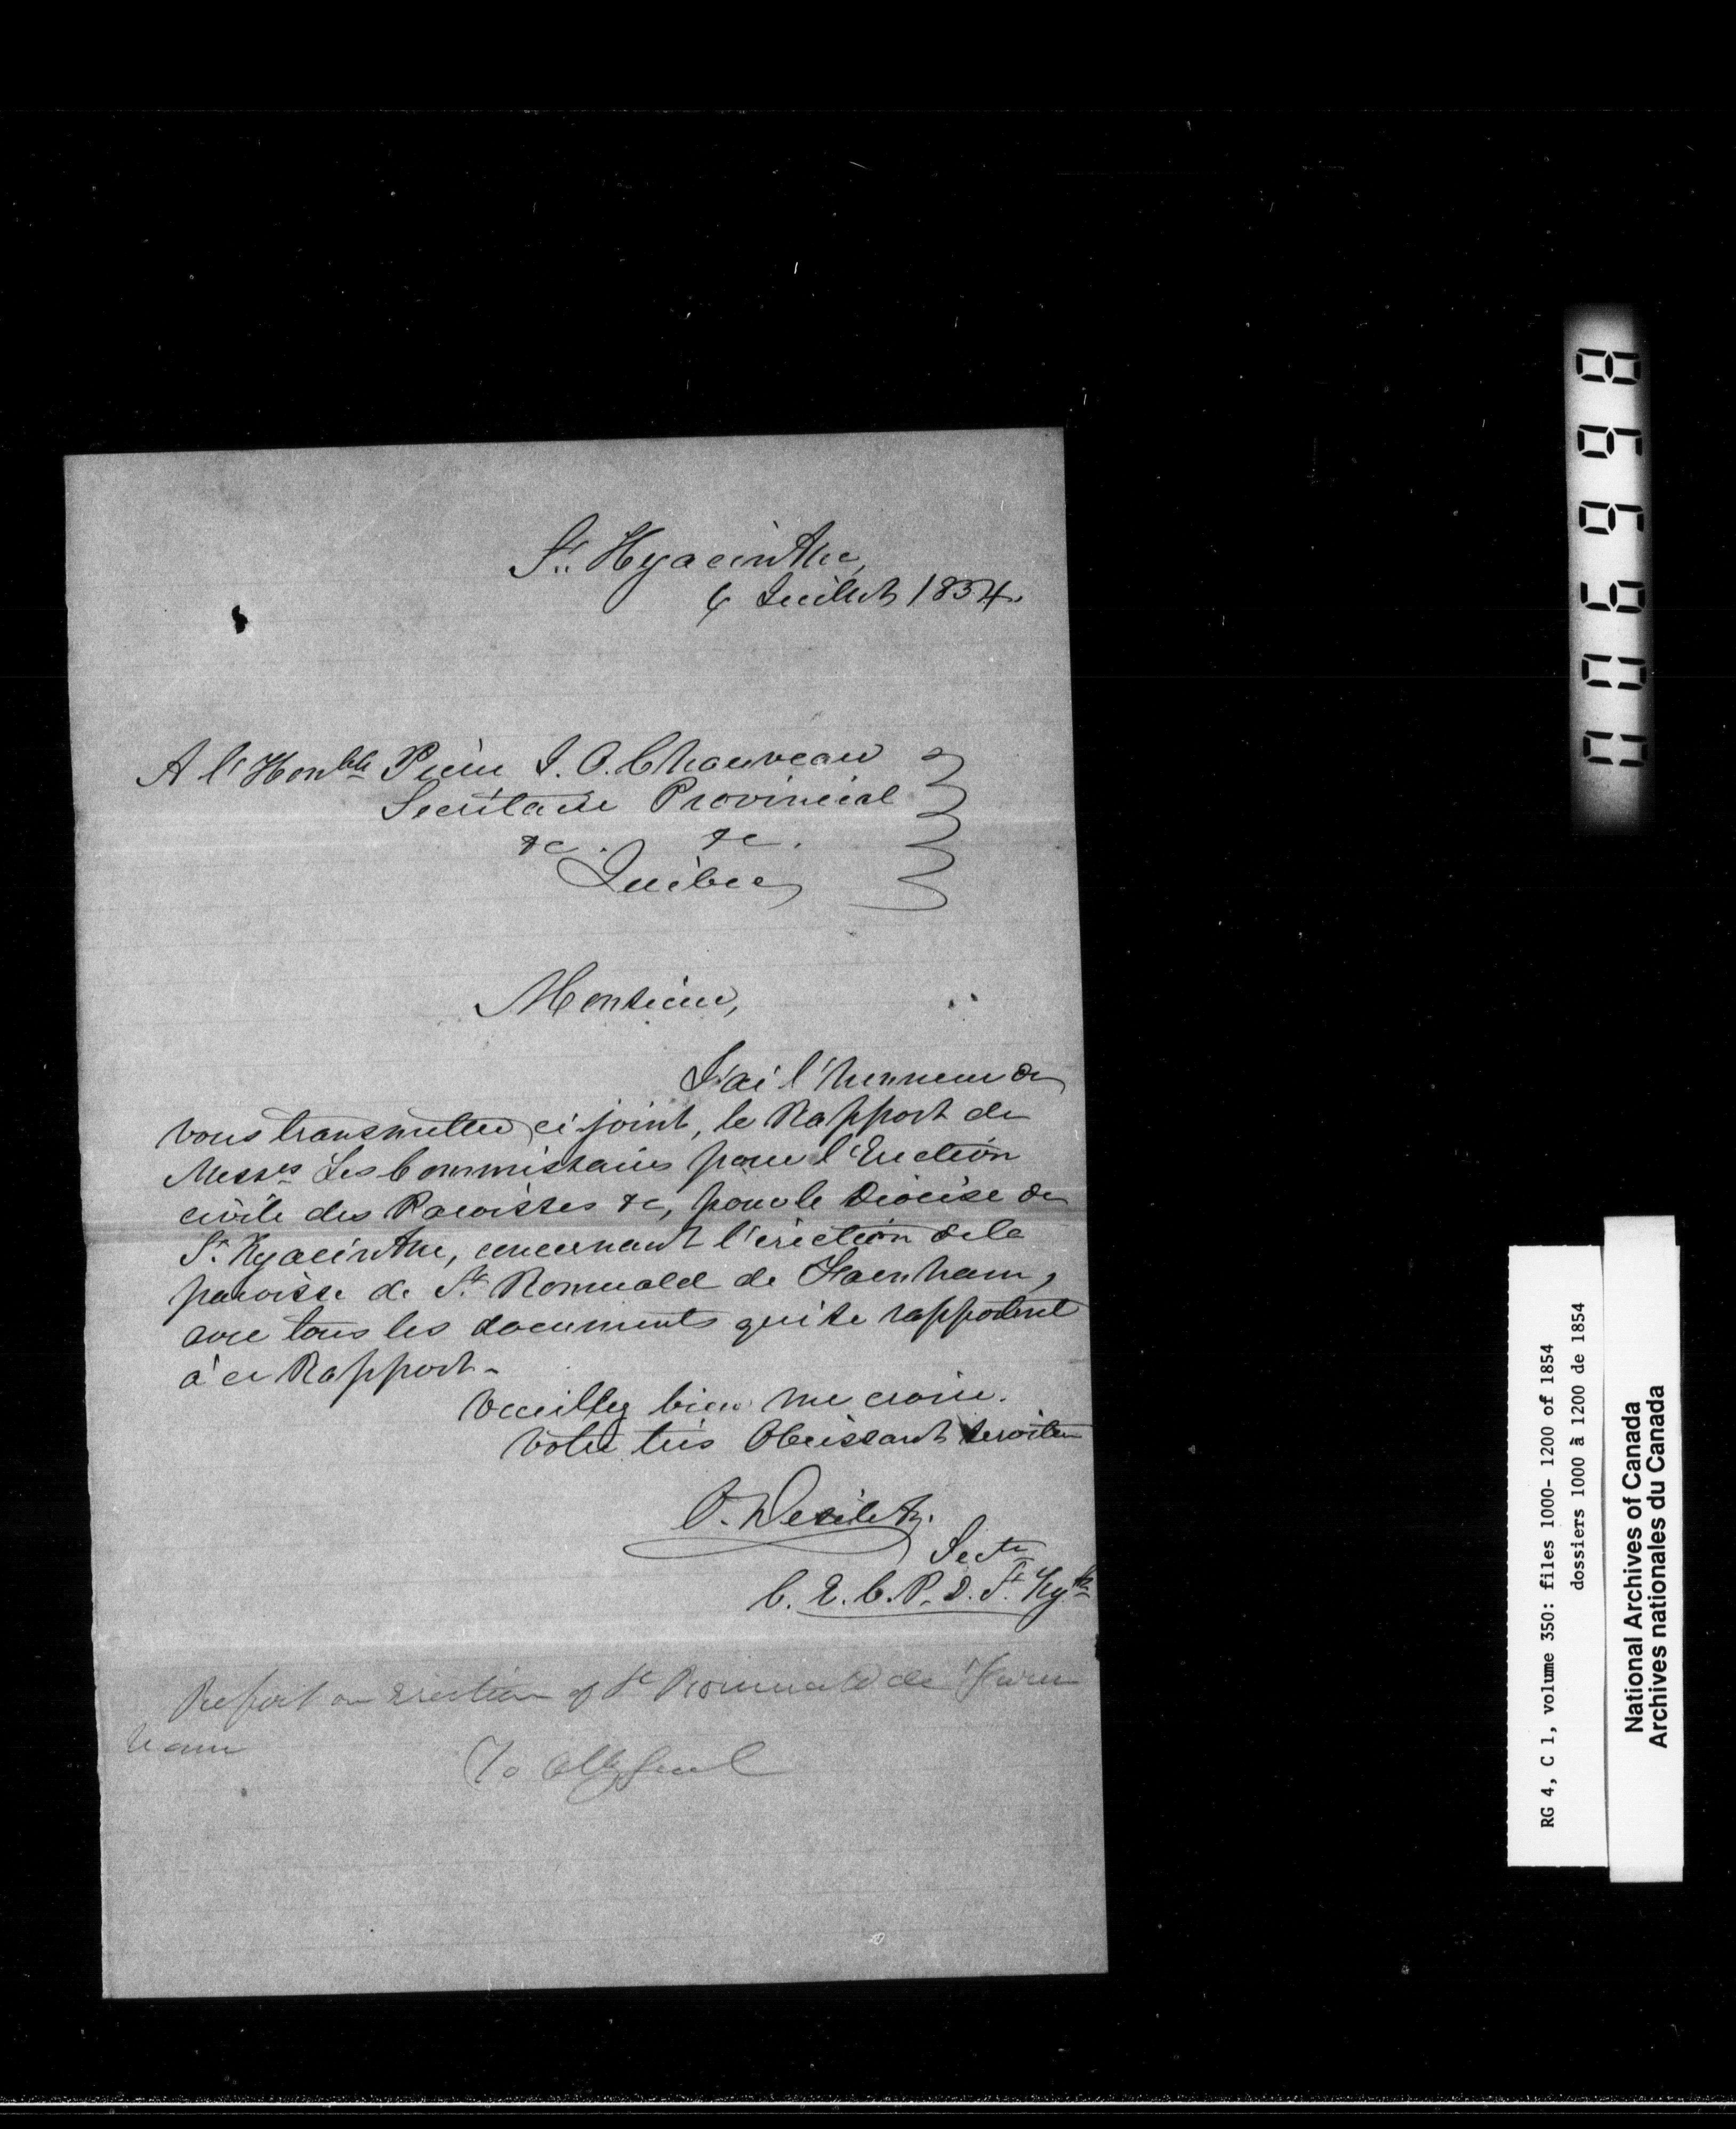 St. Hyacinthe,
6 Juillet 1854.
A l'Honble Pierre J. O. Chauveau
Secrétaire Provincial
&c. &c.
Québec
Monsieur,
J'ai l'honneur de
vous transmettre ci-joint, le Rapport de
Messrs Les Commissaires pour l'Erection
civile des Paroisses &c, pour le Diocèse de
St. Hyacinthe, concernant l'érection de la
paroisse de St. Romuald de Farnham,
avec tous les documents qui se rapportent
à ce Rapport.
Veuillez bien me croire.
Votre très Obéissant serviteur
O. Desilets.
Secre
C. E. C. P. D. St. Hythe
Report on Erection of St Romuald de Farn
ham
To Atty Genl
006998
RG 4, C 1, volume 350: files 1000- 1200 of 1854
dossiers 1000 à 1200 de 1854
National Archives of Canada
Archives nationales du Canada